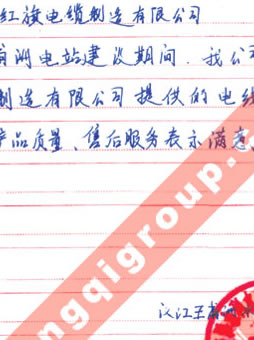 红旗电缆制造有限公司
洲电站建设期间，我公
制造有限公司提供的电线
产品质量、售后服务表示满意
ngqigroup.com
汉江王甫洲